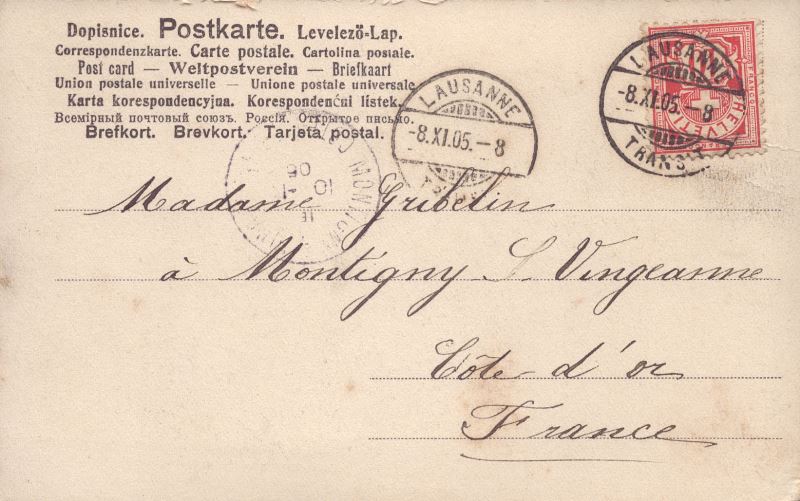 Dopisnice. Postkarte. Levelező-Lap.
Correspondenzkarte. Carte postale. Cartolina postale.
Post card — Weltpostverein — Briefkaart
Union postale universelle — Unione postale universale
Karta korespondencyjna. Korespondenční listek.
Всемірный почтовый союзъ. Россія. Открытое письмо.
Brefkort. Brevkort. Tarjeta postal.
LAUSANNE
-8.XI.05.-8
LAUSANNE
-8.XI.05.-8
TRANS
HELVETIA
Madame Gribelin
à Montigny S. Vingeanne
Côte d'or
France